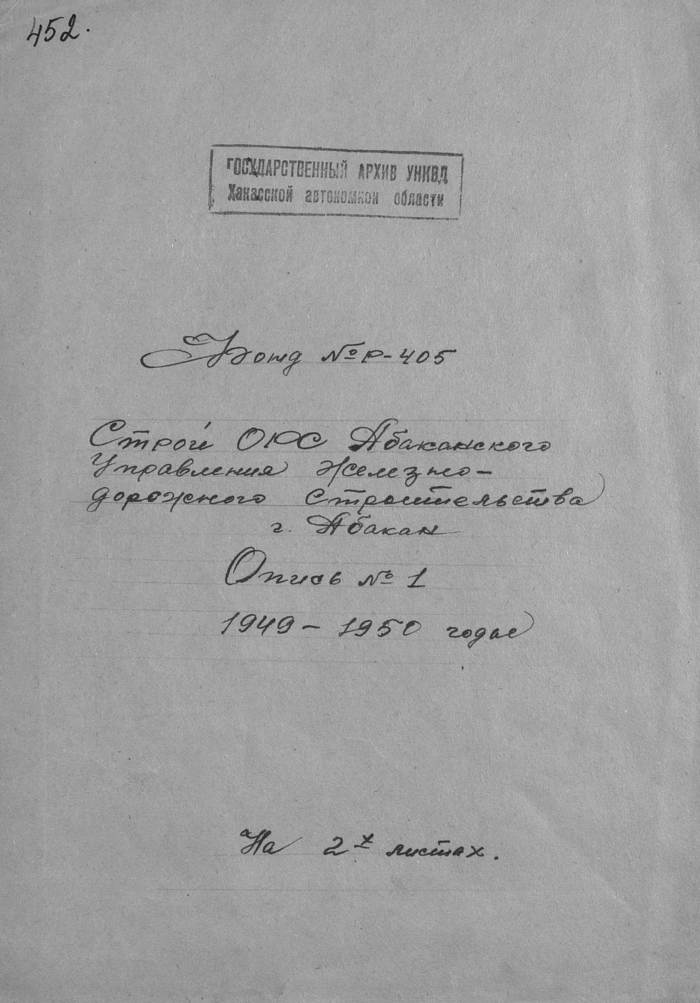 452.
ГОСУДАРСТВЕННЫЙ АРХИВ УНКВД
Хакасской автономной области
Фонд № Р-405
Строй ОРС Абаканского
Управления Железно-
дорожного Строительства
г. Абакан
Опись № 1
1949 – 1950 годы
На 2х листах.